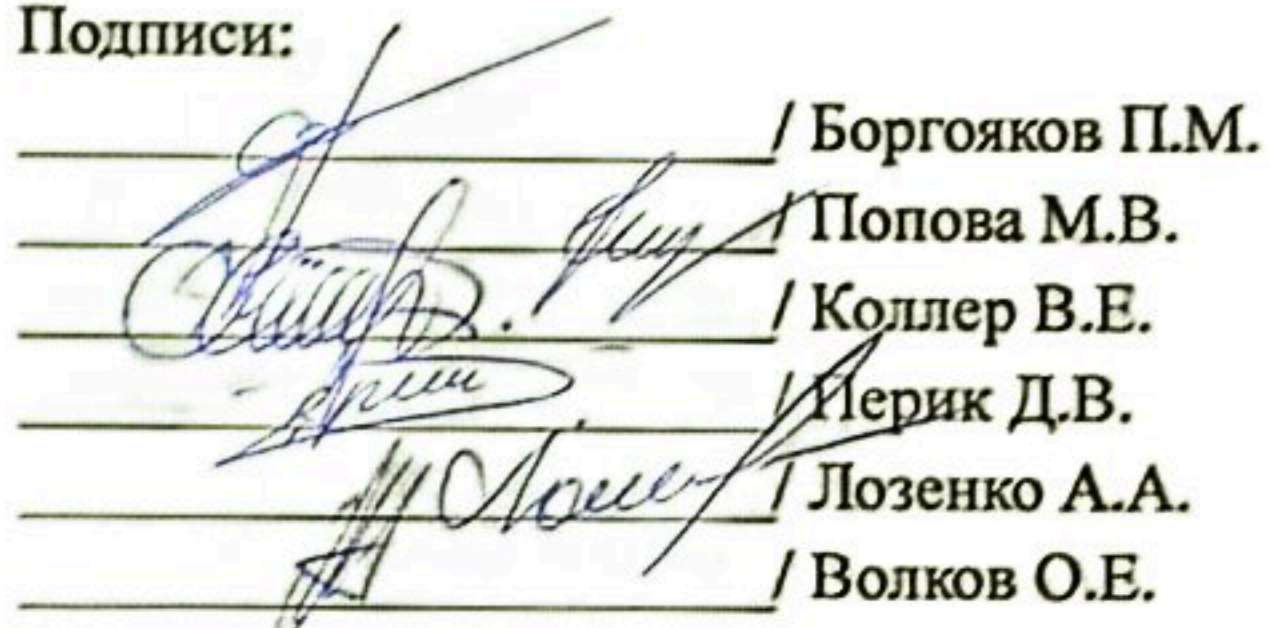 Подписи:
/ Боргояков П.М.
/ Попова М.В.
/ Коллер В.Е.
/ Перик Д.В.
/ Лозенко А.А.
/ Волков О.Е.